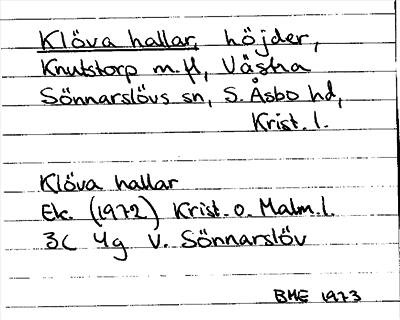 Klöva hallar, höjder,
Knutstorp m.fl, Våstra
Sönnarslövs sn, S. Åsbo hd,
Krist. l.
Klöva hallar
Ek. (1972) Krist. o. Malm. l.
3C 4g V. Sönnarslöv
BME 1973